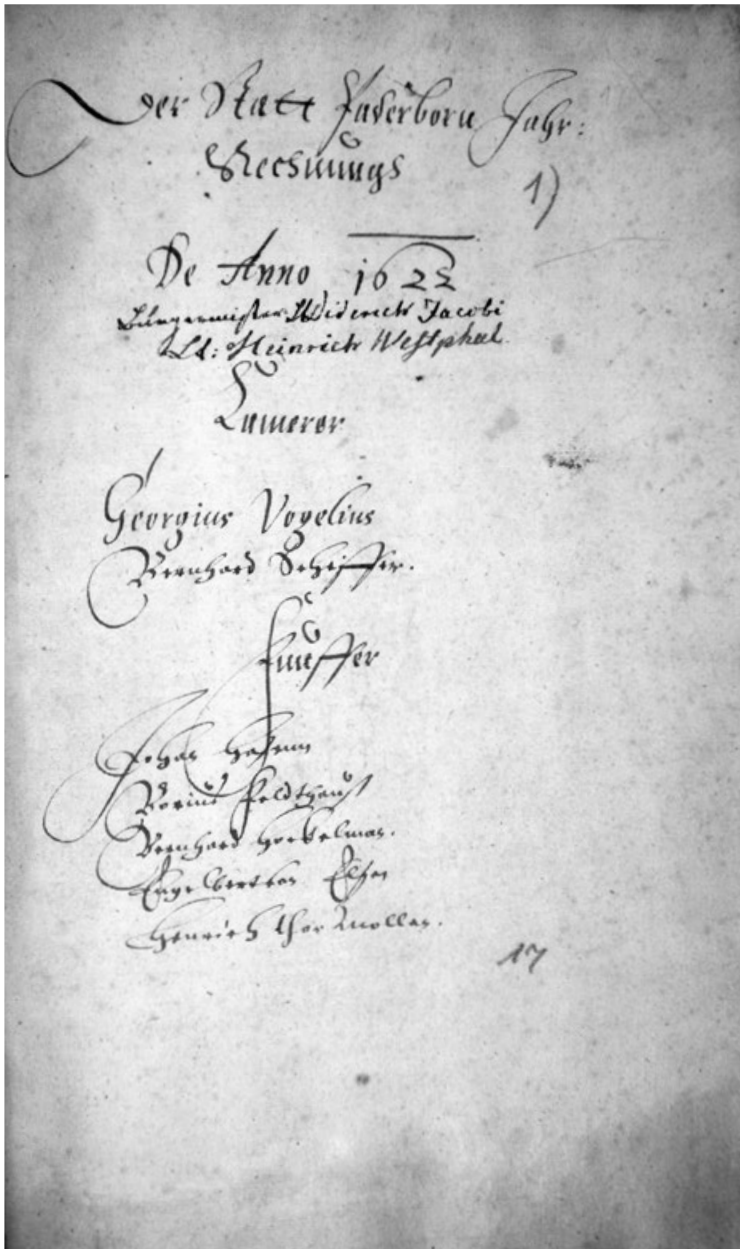 Der Statt Paderborn Jahr:
Rechnungs
1)
De Anno 1622
Bürgermister Diderich Jacobi
Lt: Heinrich Westphal
Kamerer
Georgius Vogelius
Bernhard Schiffer.
Funffer
Johan
Feldthauß
Bernhard Hockelman.
Engelbert von Elsen
Henrich thor Mollen.
17